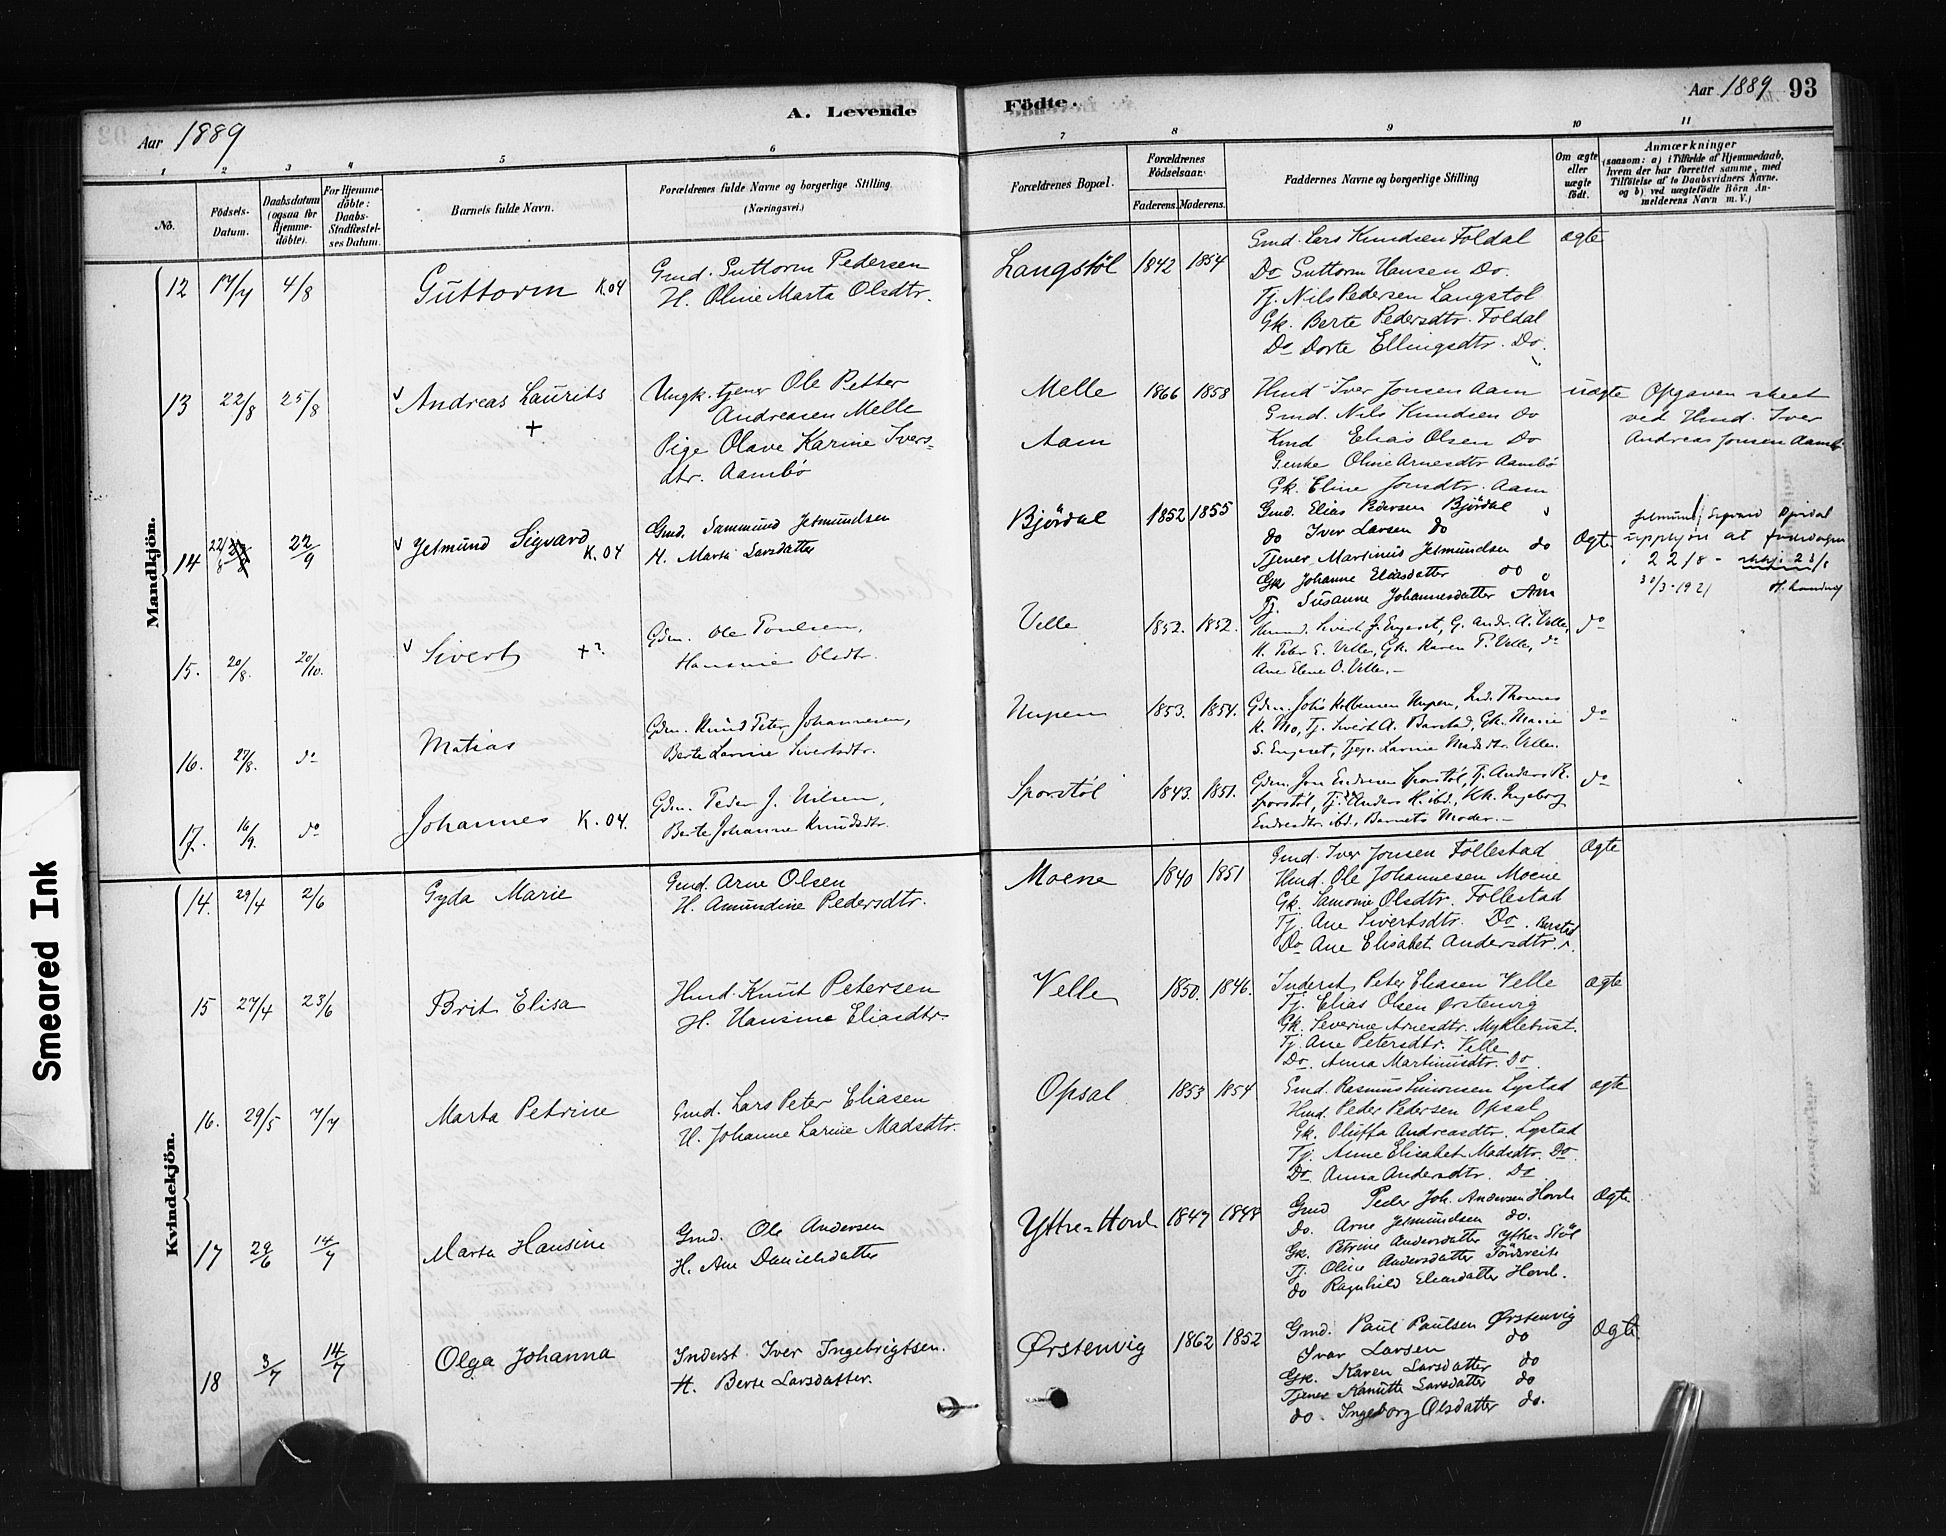 Aar 1889
A. Levende
Födte.
Aar 1889 93
1
2
3
4
5
6
7
8
9
10
11
No.
Födsels-
Datum.
Daabsdatum
(ogsaa for
Hjemme-
döbte).
For Hjemme-
döbte:
Daabs-
Stadfæstel-
ses Datum.
Barnets fulde Navn.
Forældrenes fulde Navne og borgerlige Stilling
(Næringsvei.)
Forældrenes Bopæl.
Forældrenes
Födselsaar.
Faderens. Moderens.
Faddernes Navne og borgerlige Stilling
Om ægte
eller
uægte
födt.
Anmærkninger
(saasom: a) i Tilfælde af Hjemmedaab,
hvem der har forrettet samme, med
Tilföielse af to Daabsvidners Navne.
og b) ved uægtefödte Börn An-
melderens Navn m. V.)
Mandkjön.
12 17/7 4/8 Guttorm K.04
Gmd. Guttorm Pedersen
H. Oline Marta Olsdtr.
Langstöl 1842 1854
Gmd. Lars Knudsen Foldal
Do Guttorm Hansen Do.
Tj. Nils Pedersen Langstöl
Gk. Berte Pedersdtr. Foldal
Do Dorte Ellingsdtr. Do.
ægte
13 22/8 25/8 Andreas Laurits +
Ungk. tjener Ole Petter
Andreasen Melle
Pige Olave Karine Ivers-
dtr. Aambö
Melle 1866 1858
Aam
Hmd Iver Jonsen Aam
Gmd. Nils Knudsen do
Kmd Elias Olsen Do
Enke Oline Arnesdtr Aambö
Gk. Eline Jonsdtr. Aam
uægte
Opgaven skeet
ved Hmd. Iver
Andreas Jonsen Aambö
14 22/8 22/9 Jetmund Sigvard K.04
Gmd. Sammund Jetmundsen
H. Marte Larsdatter
Björdal 1852 1855
Gmd. Elias Pedersen Björdal
do Iver Larsen do
Tjener Martinus Jetmundsen do
Gk Johanne Eliasdatter do
Tj. Susanne Johannesdatter Am
Ægte
Jetmund Sigvard Björdal
at födedagen
22/8 - 23/8
30/3-1921
15. 20/8. 20/10. Sivert +?
Gdm. Ole Poulsen,
Hansine Olsdtr.
Velle 1852. 1852.
Sivert J. Engeset, G. Andr. A. Velle,
K. Peter E. Velle, Gk. Karen P. Velle, do
Ane Elene O. Velle.-
do
16. 27/8. do Matias
Gdm. Knud Peter Johannesen,
Berte Lovine Sivertsdtr.
Nupen 1853. 1854.
Gdm. Johs Kolbensen Nupen, Ind. Thomas
K. Mo, Tj. Sivert A. Barstad, Gk. Marie
S. Engeset, Tjp. Karine Madsdtr. Velle.
do
17. 16/9. do Johannes K.04.
Gdm. Peder J. Nilsen,
Berte Johanne Knudsdtr.
Sporstöl 1843. 1851.
Gdm. Jon Endresen Sporstöl, Tj. Anders R.
Sporstöl, Tj. Anders K. ibd., Kk. Ingeborg
Endresdtr. ibd., Barnets Moder.-
do
Kvindekjön.
14. 29/4 2/6 Gyda Marie
Gmd. Arne Olsen
H. Amundine Pedersdtr.
Moene 1840 1851
Gmd. Iver Jonsen Follestad
Hmd. Ole Johannesen Moene
Gk. Samonie Olsdtr. Follestad
Tj. Ane Sivertsdtr. Do.
Do Ane Elisabet Andersdtr.
Ægte
15 27/4 23/6 Brit Elisa
Hmd. Knut Petersen
H. Hansine Eliasdtr.
Velle 1850. 1846.
Inderst Peter Eliasen Velle
Tj. Elias Olsen Ørstenvig
Gk. Severine Arnesdtr. Myklebust.
Tj. Ane Petersdtr. Velle
Do. Anna Martinusdtr. Do
ægte
16. 29/5 7/7 Marta Petrine
Gmd. Lars Peter Eliasen
H. Johanne Larine Madsdtr.
Opsal 1853 1854
Gmd. Rasmus Simonsen Lystad
Hmd. Peder Pedersen Opsal
Gk. Oluffa Andreasdtr. Lystad
Tj. Anne Elisabet Madsdtr. Do.
Do. Anna Andersdtr. Do
ægte
17 29/6 14/7 Marta Hansine
Gmd. Ole Andersen
H. Ane Danielsdatter
Yttre-Hovd. 1847 1848
Gmd Peder Joh. Andersen Hovde
do. Arne Jetmundsen do.
Gk. Petrine Andersdatter Yttre Stöl
Tj. Oline Andersdatter
do Ragnhild Eliasdatter Hovd.
Ægte
18 3/7 14/7 Olga Johanna
Inderst Iver Ingebrigtsen.
H. Berte Larsdatter.
Ørstenvig 1862 1852
Gmd. Paul Paulsen Ørstenvig
Ivar Larsen do
Gk. Karen Larsdatter do
Tjener Kanutte Larsdatter do
do. Ingeborg Olsdatter do.
Ægte
Smeared Ink